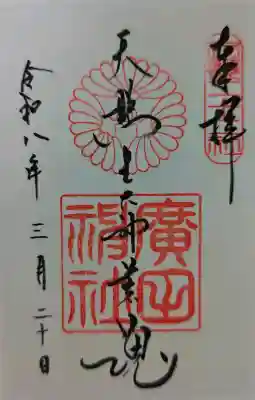 奉拝
天照大神荒魂
廣田神社
令和八年三月二十日